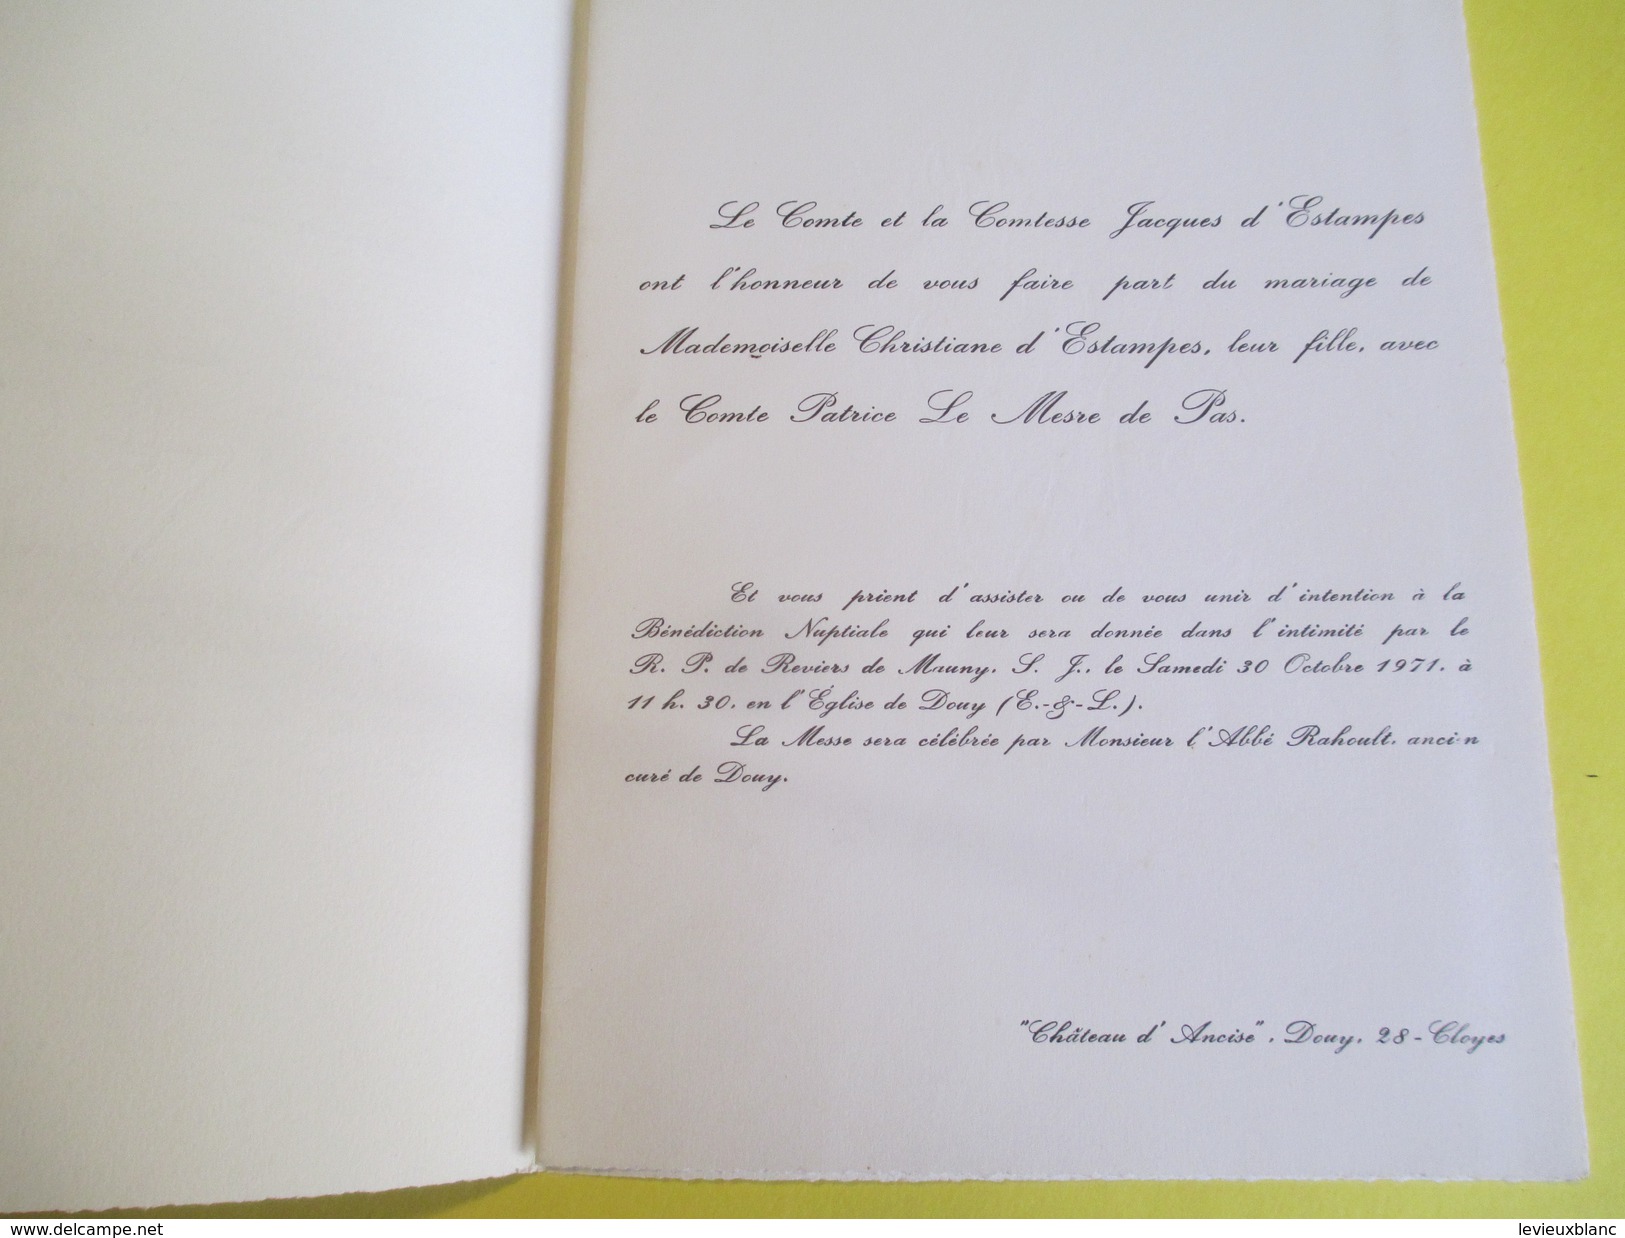 Le Comte et la Comtesse Jacques d'Estampes
ont l'honneur de vous faire part du mariage de
Mademoiselle Christiane d'Estampes, leur fille, avec
le Comte Patrice Le Mesre de Pas.
Et vous prient d'assister ou de vous unir d'intention à la
Bénédiction Nuptiale qui leur sera donnée dans l'intimité par le
R. P. de Reviers de Mauny, S. J., le Samedi 30 Octobre 1971, à
11 h. 30, en l'Église de Douy (E.-&-L.).
La Messe sera célébrée par Monsieur l'Abbé Rahoult, ancien
curé de Douy.
"Château d'Ancise", Douy, 28 - Cloyes
www.delcampe.net
levieuxblanc